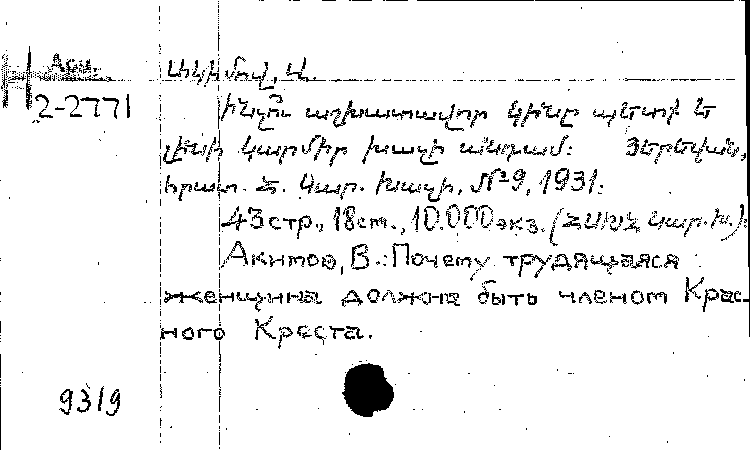 Ակիմով, Վ.
2-2771
Ինչո՞ւ աշխատավոր կինը պետք է
լինի կարմիր խաչի անդամ: Յերեվան,
հրատ. Հ. Կար. Խաչի, №9, 1931.
43 стр., 18 ст., 10.000 экз. (ՀՍԽՀ Կար. Խ.).
Акимов, В.: Почему трудящаяся
женщина должна быть членом Крас-
ного Креста.
9319